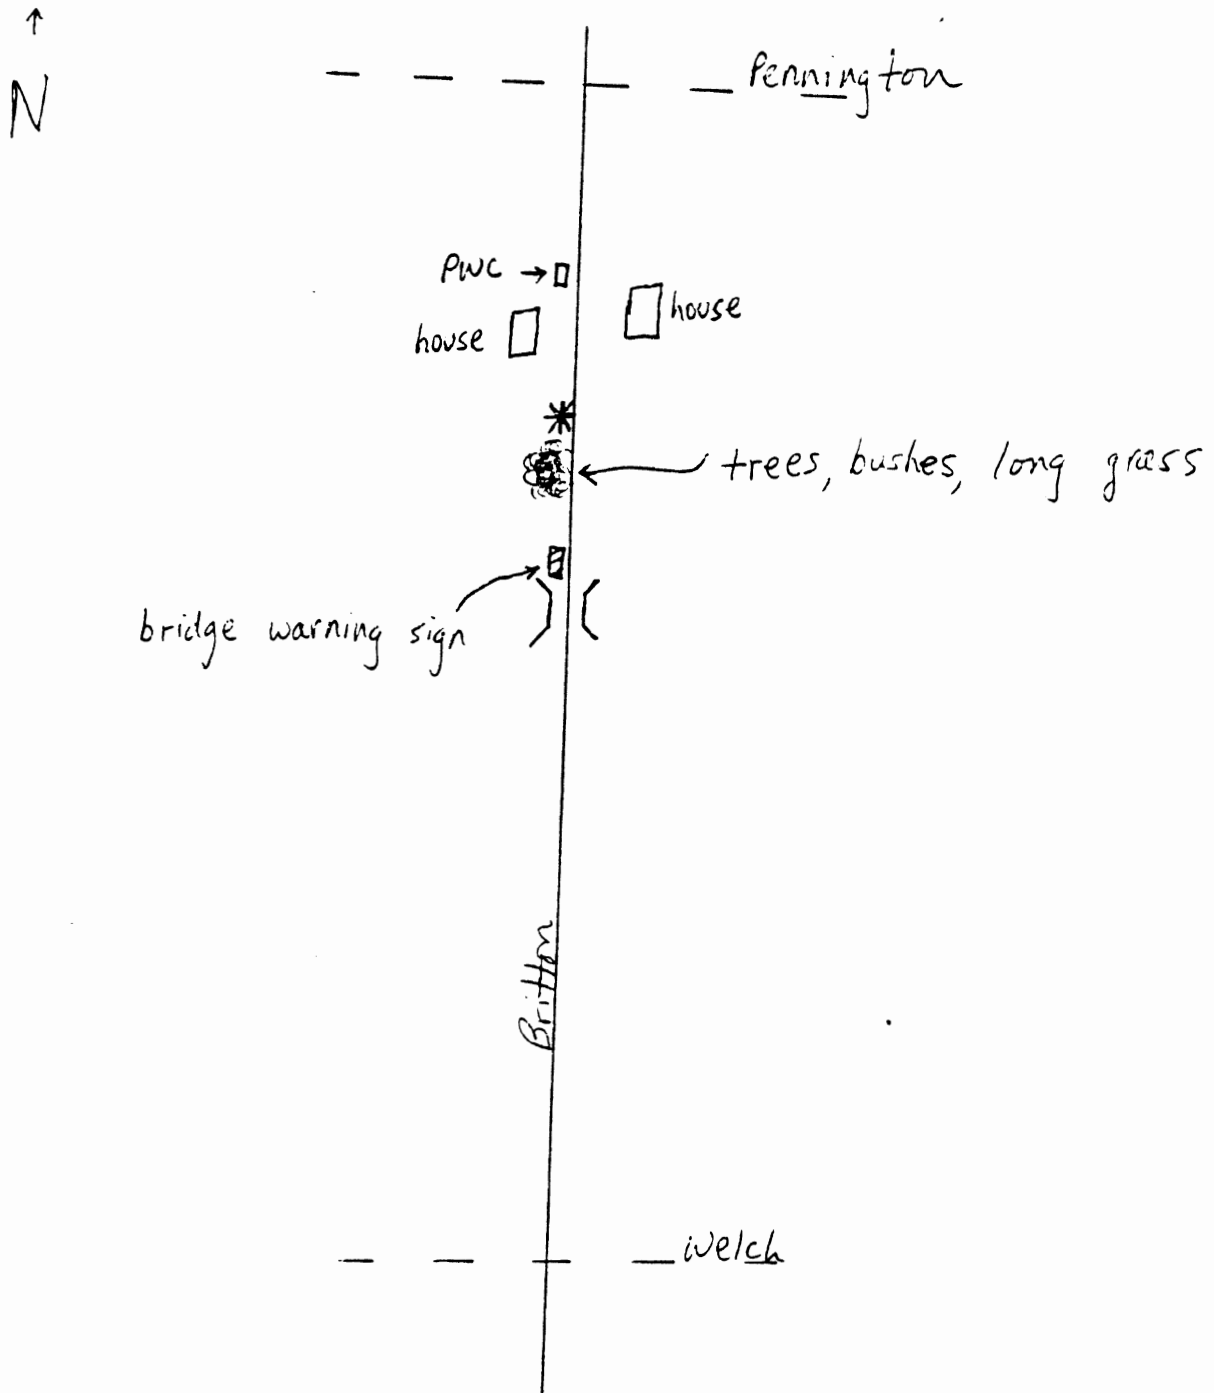 N
Pennington
PWC
house
house
trees, bushes, long grass
bridge warning sign
Britton
Welch